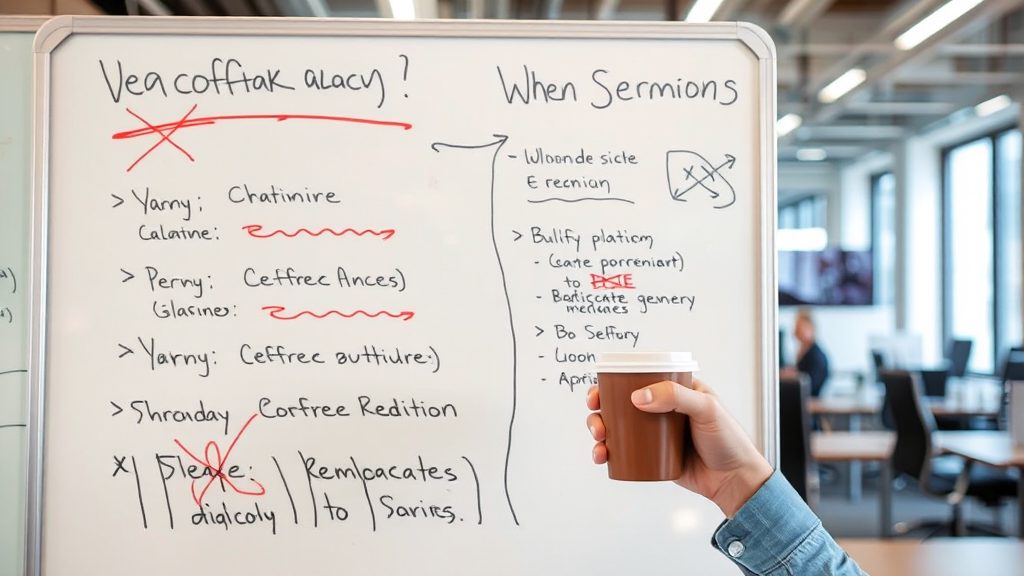 Veacofftak alacy?
> Yarny: Chatimire
Calatne:
> Perny: Ceffrec Ances)
Glasines:
> Yarny: Ceffrec buthdure:)
> Shronday Corfree Redition
x | | Sleake: | | Remlpacates
dialcoly to | Saries.
When Sermions
- Wloonde sicte
E recnian
> Bullfy platicm
- (sate porreniart)
to
- Badiscate gewnery
menicnes
> Bo Seffory
- Lioon
- Apri